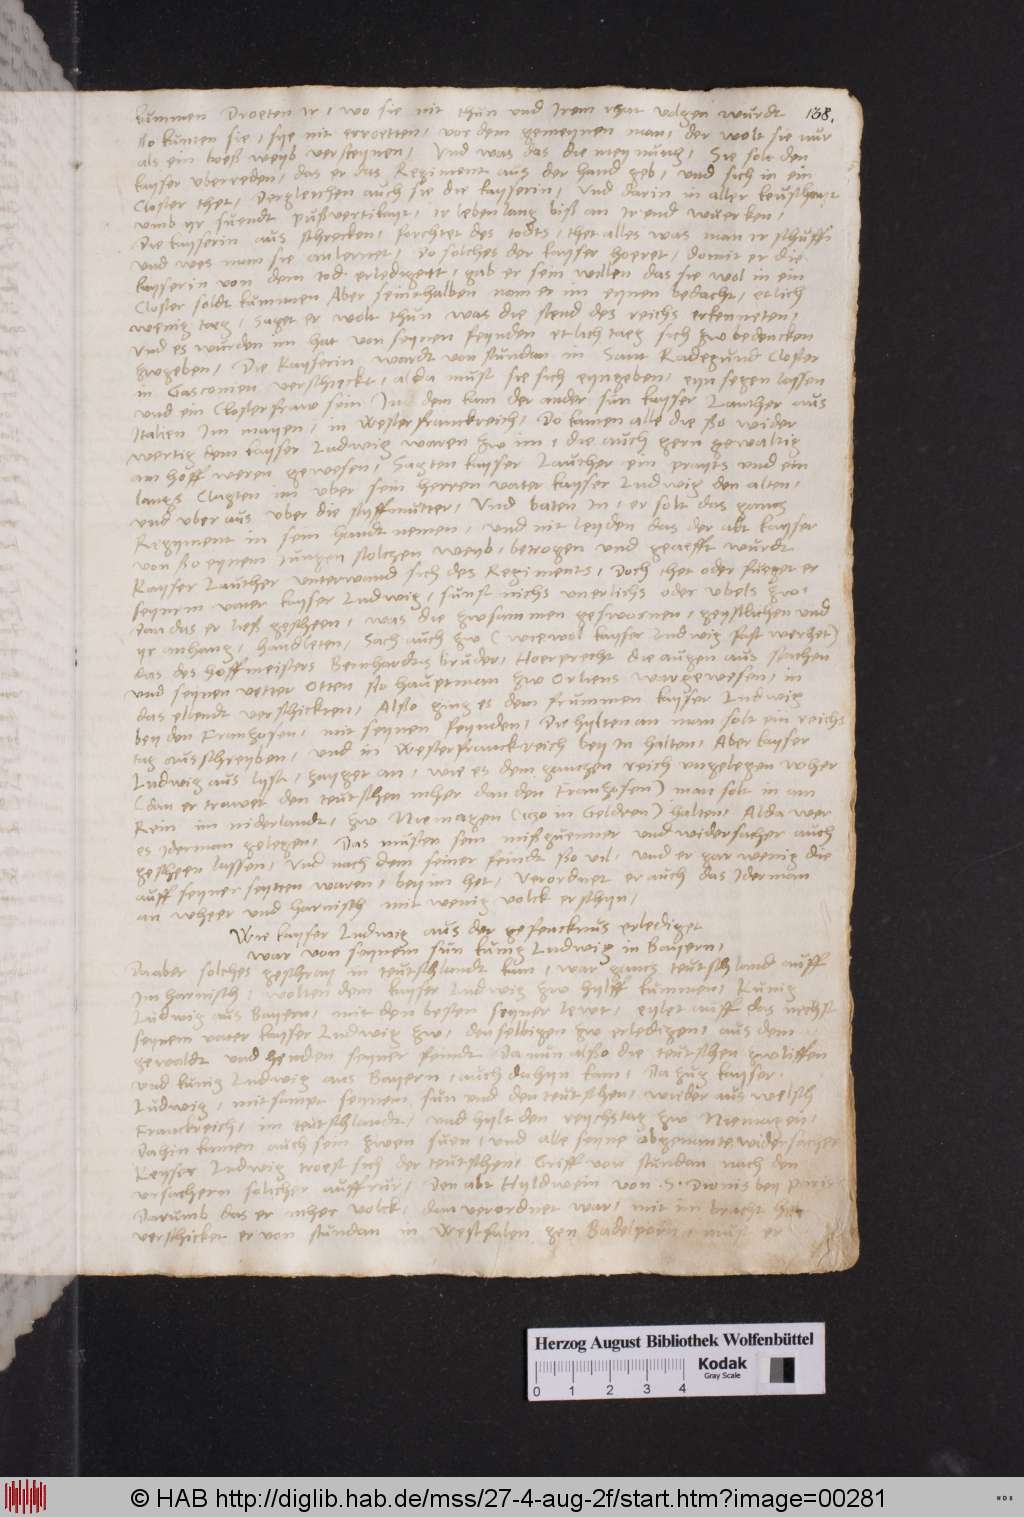 kummen Droeten ir, wo sie nit thun und Irem rhat volgen wurdt 138.
so kunten sie, sye nit erroetten, vor dem gemeynen man, der wolt sie nur
als ein boeß weyb versteynen, Und was das die meynung, Sie solt den
kayser uberreden, das er das Regiment aus der hand geb, und sich in ein
Closter thet, Dergleichen auch sie die kayserin, Und darin in aller keuscheyt
umb yr suendt pußvertikayt, ir leben lang biß an Ir end wuerken,
Die kayserin aus schrecken, forchter des todts, thet alles was man ir schuff
und wes man sie anlernet, Do solches der kayser hoeret, domit er die
kayserin von dem tod erlediget, gab er sein willen das sie wol in ein
Closter soldt kummen Aber seinethalben nam er im eynen bedacht, etlich
wenig taeg, Saget er wolt thun was die stend des reichs erkenneten,
Und es wurden im hat von seynen feynden etlich taeg sich zw bedencken
zwgeben, Die Kayserin wardt von stundan in Sant Radegund Closter
in Gasconien verschickt, alda must sie sich eyngeben, eyn segen lassen
und ein Closterfraw sein In dem kam der ander sun kayser Lauther aus
Italien Im mayen, in Westerfranckreich, Do kamen alle die so wider
wertig dem kayser Ludwig waren zw im, die auch gern gewaltig
am hoff weren gewesen, Sagten kayser Laucher ein prayts und ein
langs Clagten im uber sein herren vater kayser Ludwig den alten,
und uber aus uber die styffmutter, Und baten In, er solt das gantz
Regyment in sein handt nemen, und nit leyden das der alt kayser
von so eynem Jungen stoltzen weyb, betrogen und geaefft wurdt
Kayser Lauther unterwand sich des Regiments, Doch thet oder fueget er
seynem vater kayser Ludwig, sunst nichs unerlichs oder ubels zw,
dan das er ließ geschen, was die zwsammen geswornen, geystlichen und
yr anhang, handleten, Sach auch zw (wiewol kayser Ludwig fast werhet)
das des hoffmeisters Bernhardus bruder, Hoerprecht die augen aus stachen
und seynen vetter Otten so hauptman zw Orliens war gewesen, in
das ellendt verschickten, Also ging es dem frummen kayser Ludwig
bey den Franzosen, mit seynen feynden, Die hylten an man solt ein reichs
tag ausschreyben, und in Westerfranckreich bey In halten, Aber kayser
Ludwig aus lyst, zayget an, wie es dem gantzen reich ungelegen wher
(dan er trawet den teutschen mher dan den Franzosen) man solt in am
Rein im niderlandt, zw Niemagen (ytzo in Geldren) halten, Alda wer
es Iderman gelegen, Das musten sein mißguenner und widersacher auch
geschen lassen, Und nach dem seiner feindt so vil, und er gar wenig die
auff seyner seytten waren, bey im het, Verordnet er auch das Iderman
an wheer und harnisch mit wenig volck erschyn,
Wie kayser Ludwig aus der gefencknus erlediget
war von seynem sun kunig Ludwig in Bayern,
Da aber solches geschray in teutschlandt kam, war gantz teutschland auff
Im harnisch, wolten dem kayser Ludwig zw hylff kummen, Kunig
Ludwig aus Bayern, mit den besten seyner lewt, eylet auff das nechst
seynem vater kayser Ludwig zw, denselbigen zw erledigen, aus dem
gewaldt und henden seyner feindt Da nun also die teutschen zwliffen
und kunig Ludwig aus Bayern, auch dahyn kam, Da zug kayser
Ludwig, mitsampt seynem sun und den teutschen, wider aus welsch
Franckreich, in teutschlandt, und hylt den reychstag zw Niemagen,
Dahin kamen auch sein zwen suen, und alle seyne obgenante widersacher
Keyser Ludwig troest sich der teutschen, Griff von stundan nach den
ursachern solicher auffrur, Den abt Hyldwein von .S. Dionis bey Paris
Darumb das er mher volck, dan verordnet war, mit im bracht het
verschicket er von stundan in Westfalen gen Badelporn, must er
Herzog August Bibliothek Wolfenbüttel
Kodak
Gray Scale
0 1 2 3 4
© HAB http://diglib.hab.de/mss/27-4-aug-2f/start.htm?image=00281